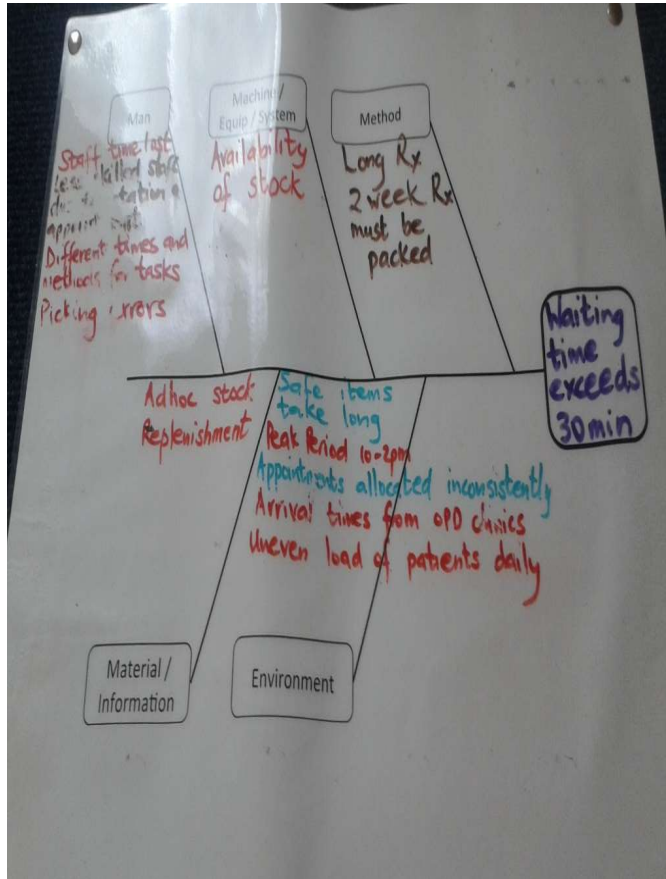 Man
Staff time lost
Less skilled staff
due to rotation &
Different times and
methods for tasks
Picking errors
Machine /
Equip / System
Availability
of stock
Method
Long Rx
2 week Rx
must be
packed
Waiting
time
exceeds
30 min
Adhoc stock
Replenishment
Safe items
take long
Peak Period 10-2pm
Appointments allocated inconsistently
Arrival times from OPD clinics
Uneven load of patients daily
Material /
Information
Environment